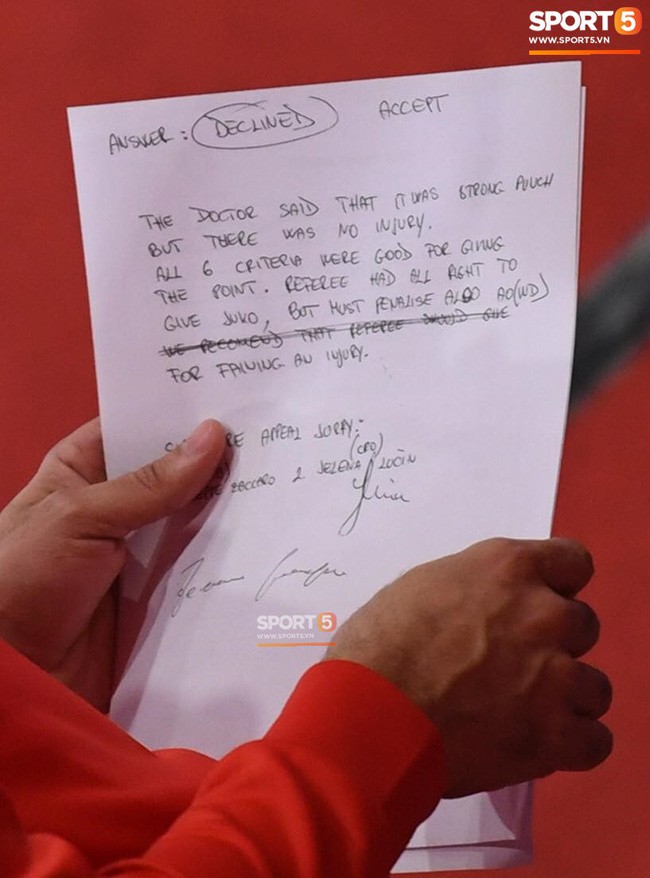 SPORT 5
WWW.SPORT5.VN
ANSWER : DECLINED ACCEPT
THE DOCTOR SAID THAT IT WAS STRONG PUNCH
BUT THERE WAS NO INJURY.
ALL 6 CRITERIA WERE GOOD FOR GIVING
THE POINT. REFEREE HAD ALL RIGHT TO
GIVE JUKO, BUT MUST PENALISE ALSO AO(IND)
WE RECOMEND THAT REFEREE SHOULD GIVE
FOR FAINING AN INJURY.
RE APPEAL JURRY:
(CRO)
ZACCARO 2 JELENA LUCIN
SPORT 5
WWW.SPORT5.VN